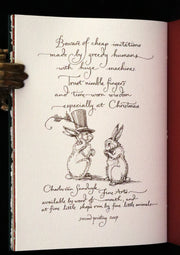 Beware of cheap imitations
made by greedy humans
with huge machines
Trust nimble fingers
and time-worn wisdom
especially at Christmas
Charles van Sandwyk Fine Arts
available by word of mouth, and
at fine little shops run by fine little animals.
second printing 2009